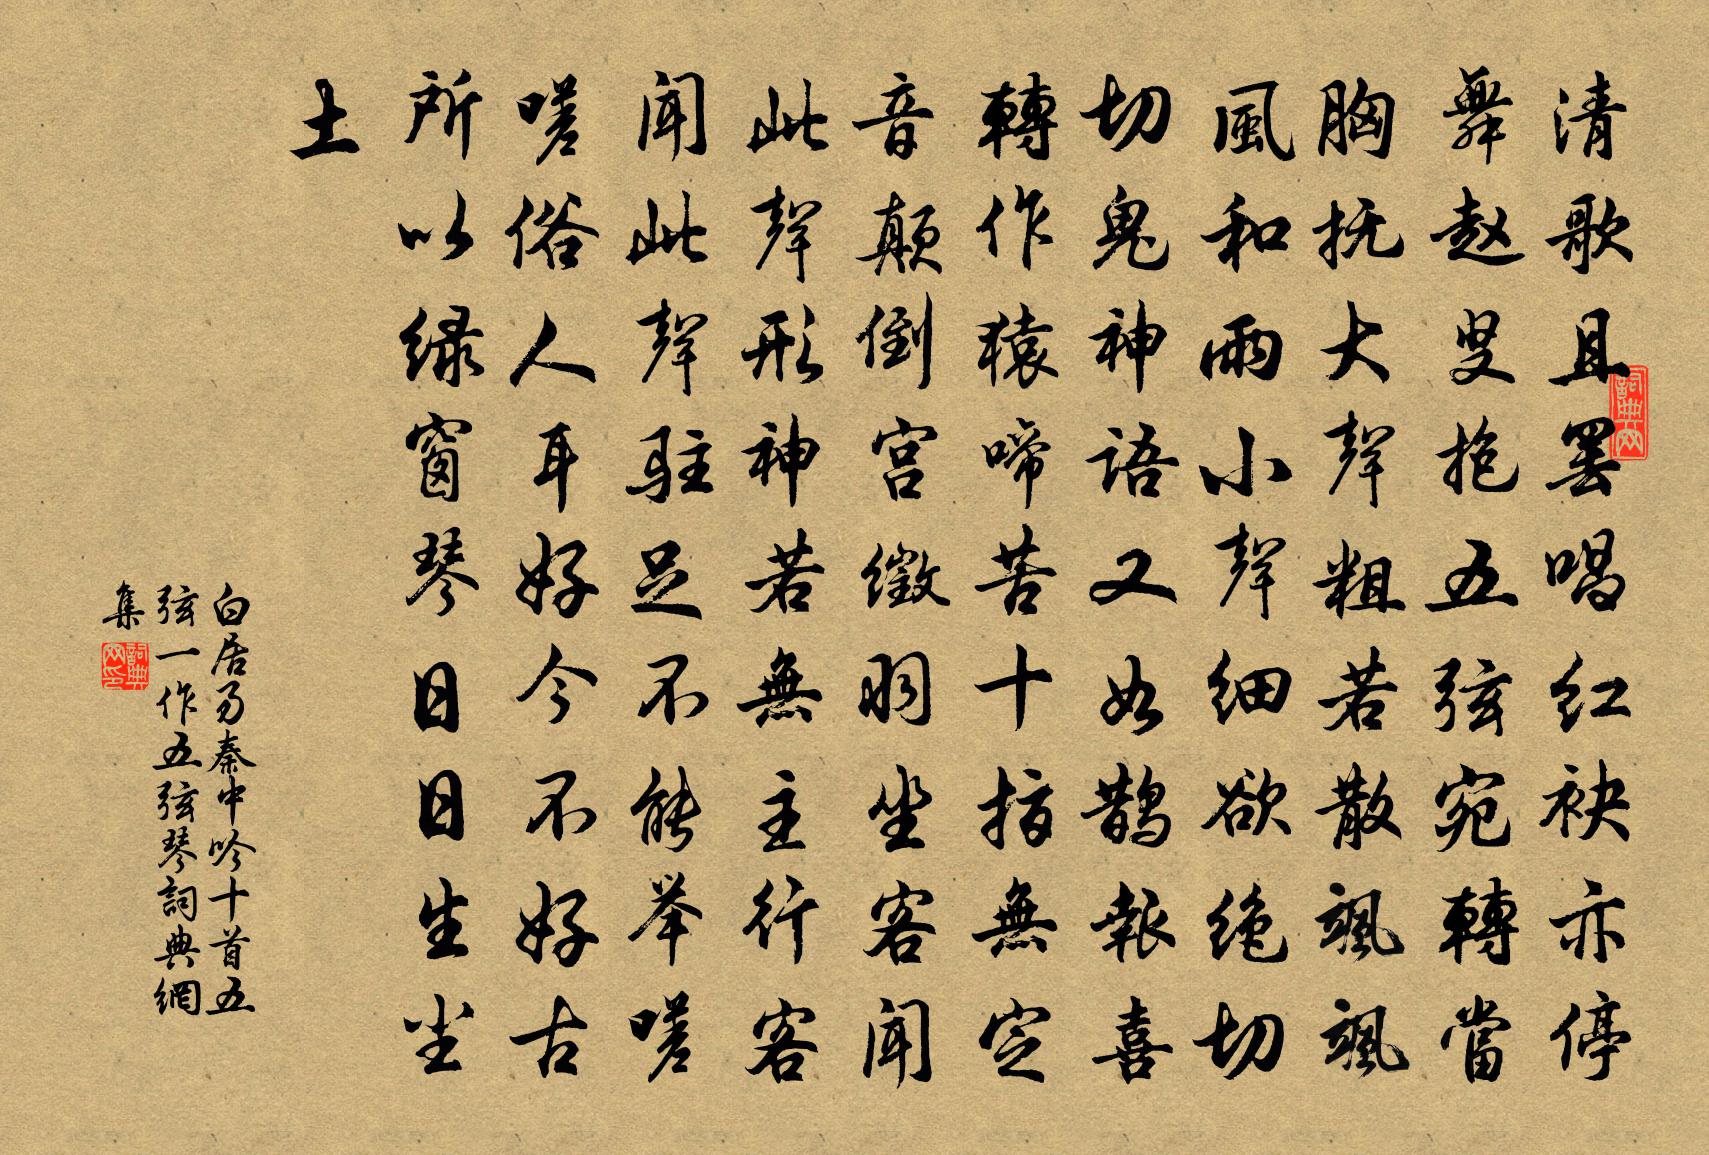 清歌且罢唱红袂亦停
舞赵叟抱五弦宛轉當
胸抚大聲粗若散颯颯
風和雨小聲细欲绝切
切鬼神語又如鹊報喜
轉作猿啼苦十指無定
音颠倒宫徵羽坐客闻
此聲形神若無主行客
闻此聲驻足不能举嗟
嗟俗人耳好今不好古
所以绿窗琴日日生尘
土
白居易秦中吟十首五
弦一作五弦琴詞典網
集
詞典网
詞典网印